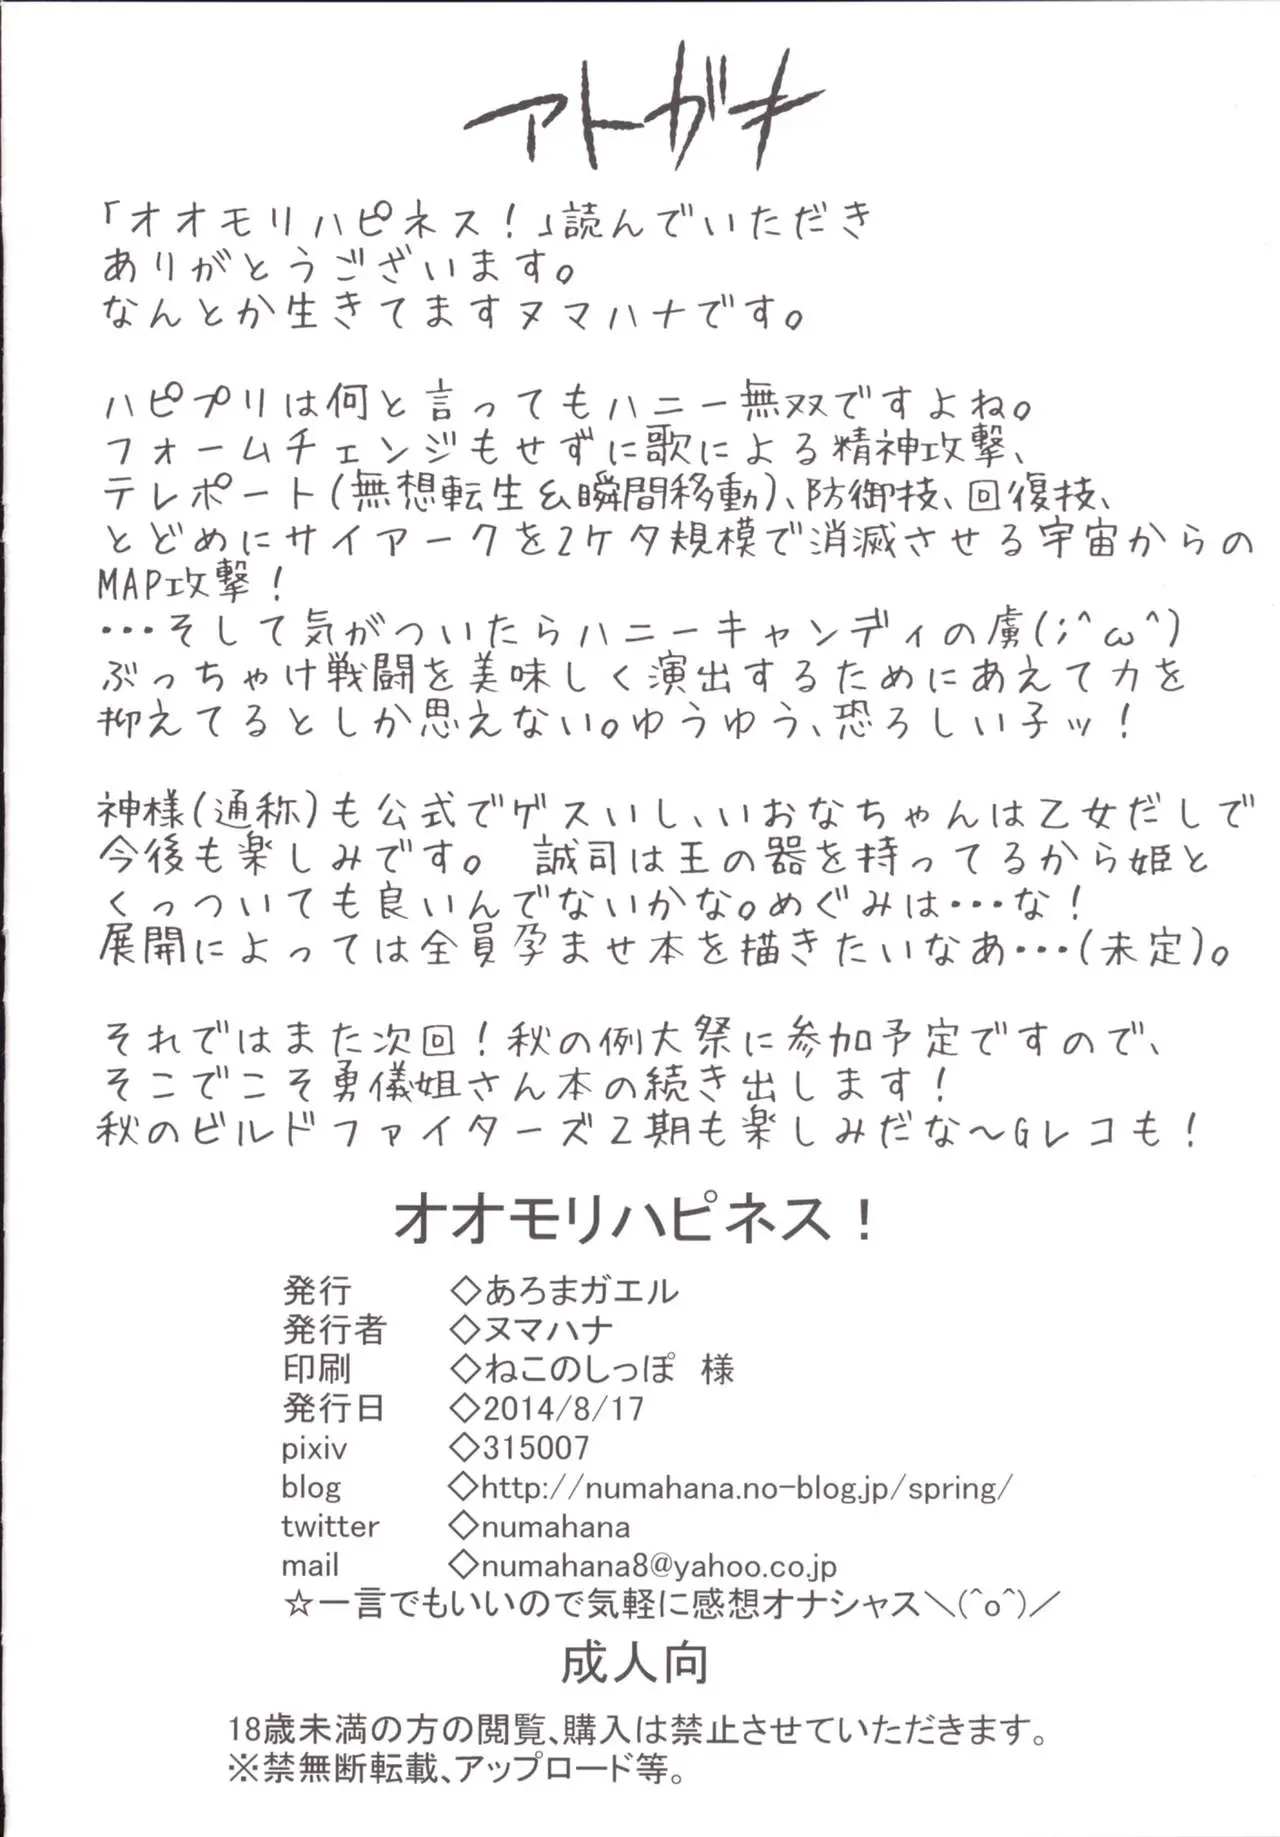 アトガキ
「オオモリハピネス!」読んでいただき
ありがとうございます。
なんとか生きてますヌマハナです。
ハピプリは何と言ってもハニー無双ですよね。
フォームチェンジもせずに歌による精神攻撃、
テレポート(無想転生&瞬間移動)、防御技、回復技、
とどめにサイアークを2ケタ規模で消滅させる宇宙からの
MAP攻撃!
・・・そして気がついたらハニーキャンディの虜(;^ω^)
ぶっちゃけ戦闘を美味しく演出するためにあえて力を
抑えてるとしか思えない。ゆうゆう、恐ろしい子ッ!
神様(通称)も公式でゲスいし、いおなちゃんは乙女だしで
今後も楽しみです。 誠司は王の器を持ってるから姫と
くっついても良いんでないかな。めぐみは・・・な!
展開によっては全員孕ませ本を描きたいなあ・・・(未定)。
それではまた次回!秋の例大祭に参加予定ですので、
そこでこそ勇儀姐さん本の続き出します!
秋のビルドファイターズ2期も楽しみだな～Gレコも!
オオモリハピネス!
発行 ◇あろまガエル
発行者 ◇ヌマハナ
印刷 ◇ねこのしっぽ 様
発行日 ◇2014/8/17
pixiv ◇315007
blog ◇http://numahana.no-blog.jp/spring/
twitter ◇numahana
mail ◇numahana8@yahoo.co.jp
☆一言でもいいので気軽に感想オナシャス＼(^o^)／
成人向
18歳未満の方の閲覧、購入は禁止させていただきます。
※禁無断転載、アップロード等。